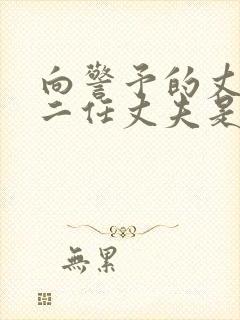 向警予的丈
二任丈夫是
無累